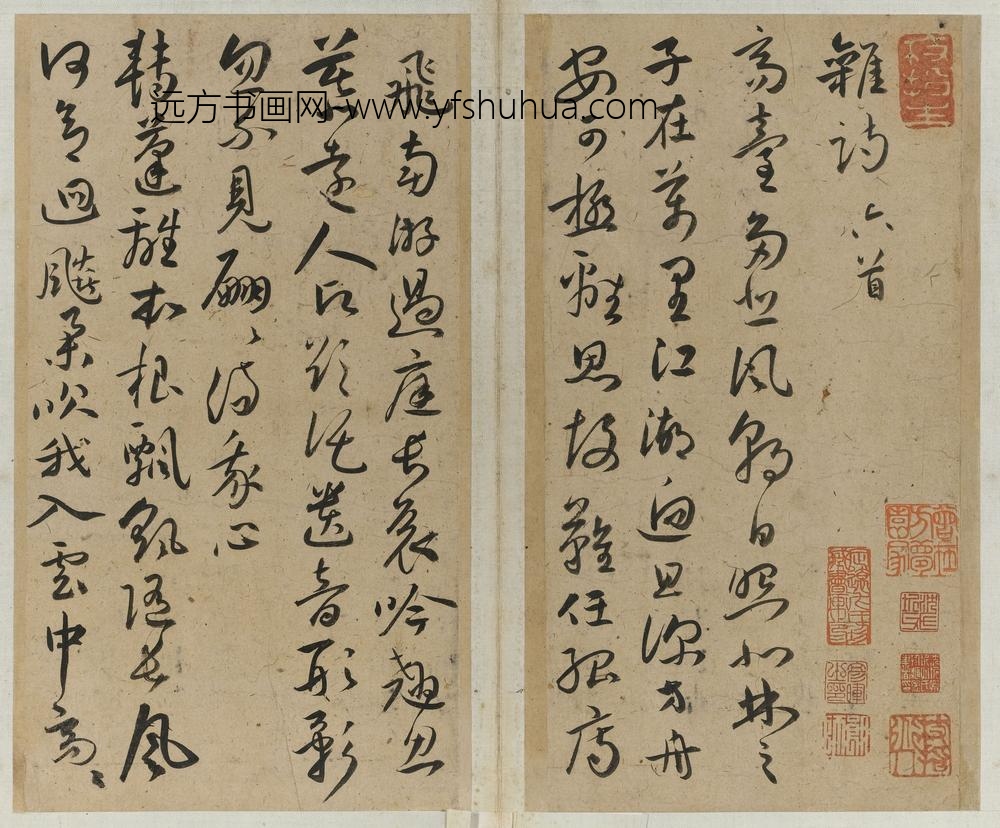 雜詩六首
高臺多悲風朝日照北林之
子在萬里江湖迥且深方舟
安可極離思故難任孤鴈
飛南游過庭長哀吟翹思
慕遠人願欲託遺音形影
忽不見翩〻傷我心
轉蓬離本根飄颻隨長風
何意迴飈舉吹我入雲中高〻
远方书画网--www.yfshuhua.com